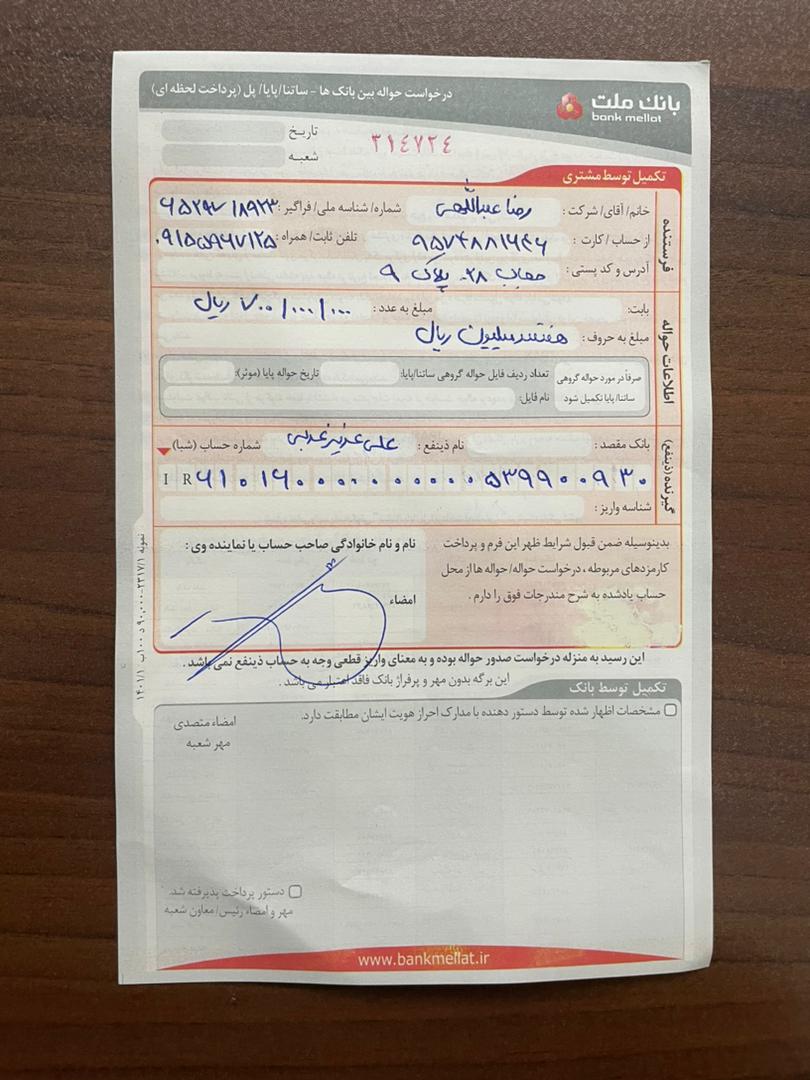 بانک ملت
bank mellat
درخواست حواله بین بانک ها - ساتنا/پایا/ پل (پرداخت لحظه ای)
تاریخ
۳۱٤۷۲٤
شعبه
تکمیل توسط مشتری
فرستنده
خانم/ آقای/ شرکت : رضا عبداللهی شماره/ شناسه ملی/ فراگیر :
از حساب / کارت : تلفن ثابت/ همراه : ۰۹۱۵۵۹۶۷۱۲۵
آدرس و کد پستی : ۲۸ پلاک ۹
اطلاعات حواله
بابت: مبلغ به عدد : ۷۰۰/۰۰۰/۰۰۰ ریال
مبلغ به حروف : هفتصد میلیون ریال
صرفاً در مورد حواله گروهی ساتنا/ پایا تکمیل شود
تعداد ردیف فایل حواله گروهی ساتنا/پایا: تاریخ حواله پایا (موثر):
نام فایل:
گیرنده (ذینفع)
بانک مقصد : نام ذینفع : علی شماره حساب (شبا)
I R ۶۱۰۱۶۰۰۰۰۰۰۰۰۰۰۵۳۹۹۰۰۹۳۰
شناسه واریز :
بدینوسیله ضمن قبول شرایط ظهر این فرم و پرداخت
کارمزدهای مربوطه ، درخواست حواله/ حواله ها از محل
حساب یادشده به شرح مندرجات فوق را دارم .
نام و نام خانوادگی صاحب حساب یا نماینده وی :
امضاء
این رسید به منزله درخواست صدور حواله بوده و به معنای واریز قطعی وجه به حساب ذینفع نمی باشد .
این برگه بدون مهر و پرفراژ بانک فاقد اعتبار می باشد .
تکمیل توسط بانک
مشخصات اظهار شده توسط دستور دهنده با مدارک احراز هویت ایشان مطابقت دارد.
امضاء متصدی
مهر شعبه
دستور پرداخت پذیرفته شد.
مهر و امضاء رئیس/ معاون شعبه
www.bankmellat.ir